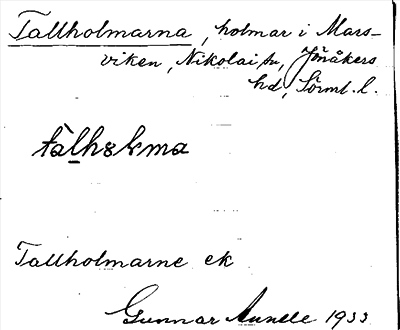 Tallholmarna, holmar i Mars-
viken, Nikolai sn, Jönåkers
hd, Sörml. l.
Tallholmarne ek
Gunnar 1933